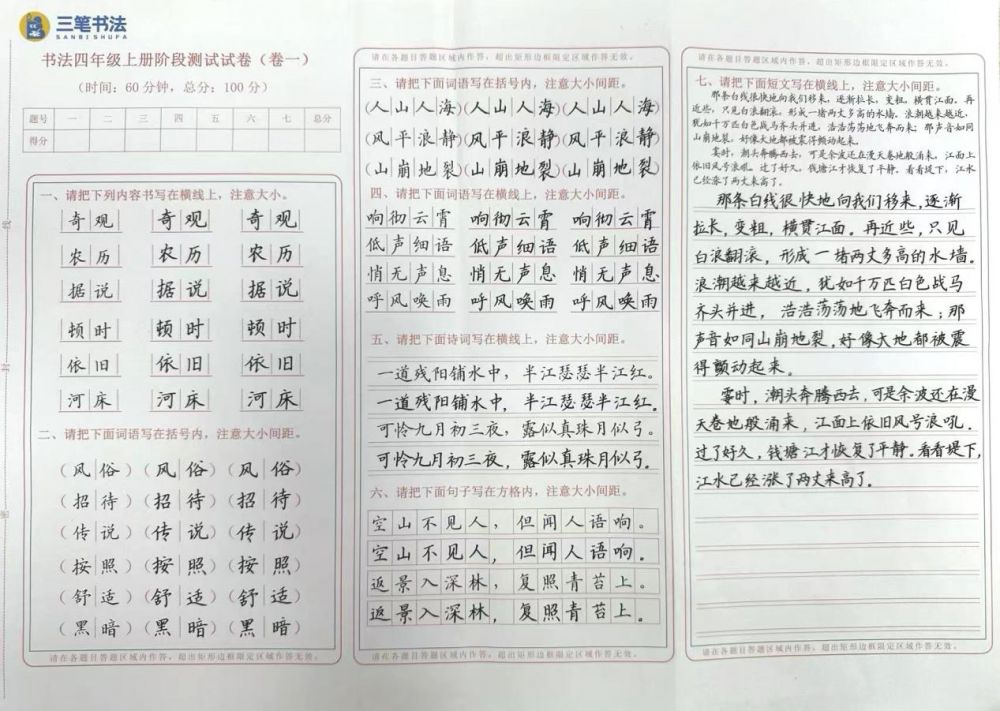 三笔书法
SANBISHUFA
书法四年级上册阶段测试试卷（卷一）
（时间：60分钟，总分：100分）
题号 一 二 三 四 五 六 七 总分
得分
一、请把下列内容书写在横线上，注意大小。
奇观 奇观 奇观
农历 农历 农历
据说 据说 据说
顿时 顿时 顿时
依旧 依旧 依旧
河床 河床 河床
二、请把下面词语写在括号内，注意大小间距。
（风俗）（风俗）（风俗）
（招待）（招待）（招待）
（传说）（传说）（传说）
（按照）（按照）（按照）
（舒适）（舒适）（舒适）
（黑暗）（黑暗）（黑暗）
请在各题目答题区域内作答，超出矩形边框限定区域作答无效。
请在各题目答题区域内作答，超出矩形边框限定区域作答无效。
三、请把下面词语写在括号内，注意大小间距。
（人山人海）（人山人海）（人山人海）
（风平浪静）（风平浪静）（风平浪静）
（山崩地裂）（山崩地裂）（山崩地裂）
四、请把下面词语写在横线上，注意大小间距。
响彻云霄 响彻云霄 响彻云霄
低声细语 低声细语 低声细语
悄无声息 悄无声息 悄无声息
呼风唤雨 呼风唤雨 呼风唤雨
五、请把下面诗词写在横线上，注意大小间距。
一道残阳铺水中，半江瑟瑟半江红。
一道残阳铺水中，半江瑟瑟半江红。
可怜九月初三夜，露似真珠月似弓。
可怜九月初三夜，露似真珠月似弓。
六、请把下面句子写在方格内，注意大小间距。
空山不见人，但闻人语响。
空山不见人，但闻人语响。
返景入深林，复照青苔上。
返景入深林，复照青苔上。
请在各题目答题区域内作答，超出矩形边框限定区域作答无效。
请在各题目答题区域内作答，超出矩形边框限定区域作答无效。
七、请把下面短文写在横线上，注意大小间距。
那条白线很快地向我们移来，逐渐拉长，变粗，横贯江面。再
近些，只见白浪翻滚，形成一堵两丈多高的水墙。浪潮越来越近，
犹如千万匹白色战马齐头并进，浩浩荡荡地飞奔而来；那声音如同
山崩地裂，好像大地都被震得颤动起来。
霎时，潮头奔腾西去，可是余波还在漫天卷地般涌来，江面上
依旧风号浪吼。过了好久，钱塘江才恢复了平静。看看堤下，江水
已经涨了两丈来高了。
那条白线很快地向我们移来，逐渐
拉长，变粗，横贯江面。再近些，只见
白浪翻滚，形成一堵两丈多高的水墙。
浪潮越来越近，犹如千万匹白色战马
齐头并进，浩浩荡荡地飞奔而来；那
声音如同山崩地裂，好像大地都被震
得颤动起来。
霎时，潮头奔腾西去，可是余波还在漫
天卷地般涌来，江面上依旧风号浪吼。
过了好久，钱塘江才恢复了平静。看看堤下，
江水已经涨了两丈来高了。
请在各题目答题区域内作答，超出矩形边框限定区域作答无效。